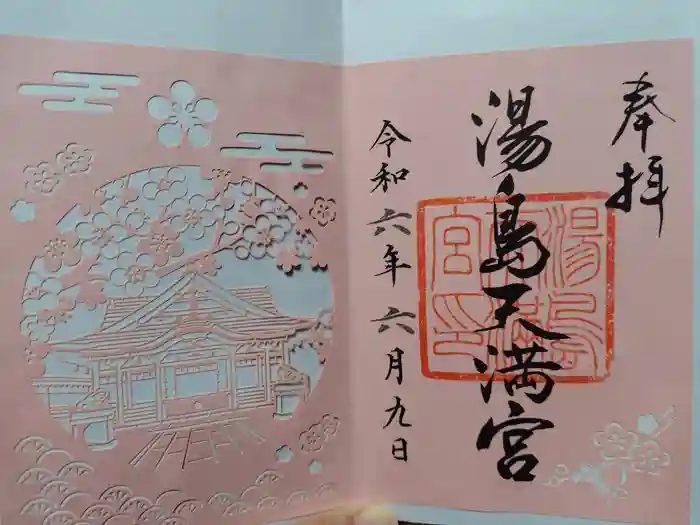 奉拝
湯島天満宮
令和六年六月九日